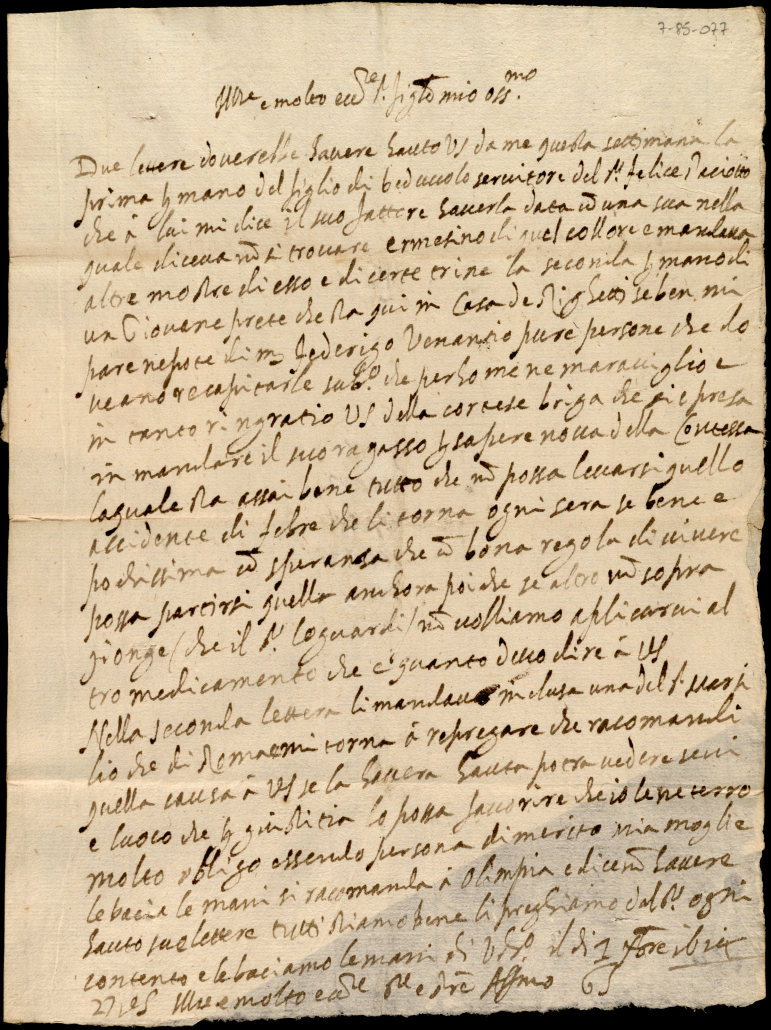 7-85-077
Ill.re e molto ecc.te S.r figlio mio oss.mo
Due lettere doverebbe havere hauto VS da me questa settimana la
prima p mano del figlio di beduccolo servitore del S.r felice paciotto
che à lui mi dice il suo fattore haverla data cõ una sua nella
quale diceva nõ si trovare ermesino di quel collore e mandava
altre mostre di esso e di certe trine la seconda p mano di
un Giovane prete che sta qui in Casa de Righetti se ben mi
pare nepote di m federigo Venantio pure persone che do
veano recapitarle sub.o che perho me ne maraviglio e
in tanto ringratio VS della cortese briga che si è presa
in mandare il suo ragasso p sapere nova della Contessa
laquale sta assai bene tutto che nõ possa levarsi quello
accidente di febre che li torna ogni sera se bene e
pochissima cõ speranza che cõ bona regola di vivere
possa partirsi quella anchora poi che se altro nõ sopra
gionge (che il S.r lo guardi) nõ volliamo aplicarvi al
tro medicamento che è quanto devo dire à VS
Nella seconda lettera li mandava inclusa una del S.r
lio che di Roma mi torna à repregare che racomandi
quella causa à VS se la havera hauta potra vedere se vi
e luoco che p giustitia lo possa favorire che io le ne terro
molto obbligo essendo persona di merito mia moglie
le bacia le mani si racomanda à Olimpia e dice nõ havere
hauto sue lettere tutti stiamo bene li preghiamo dal S.r ogni
contento e le baciamo le mani di il di
Ill.re e molto ecc.te